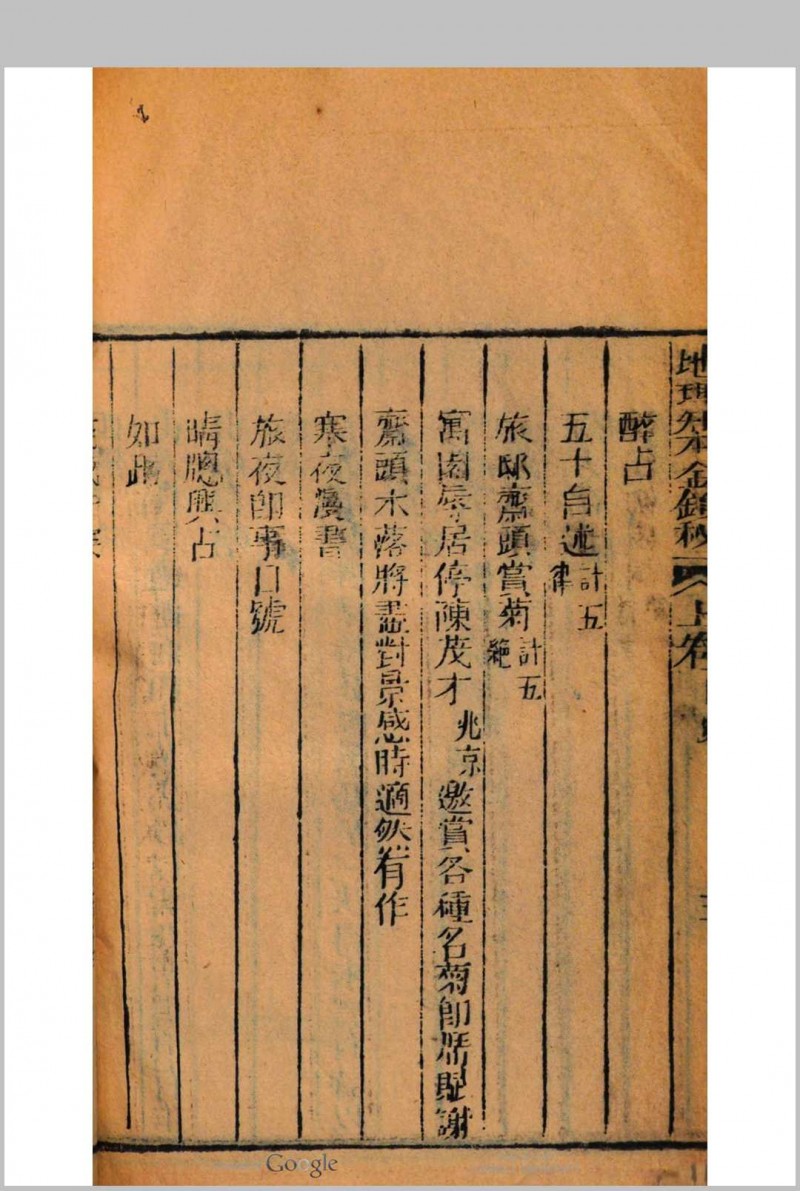 醉占
五十自述計五律
旅邸齋頭賞菊計五絕
寓園辱居停陳茂才兆京邀賞各種名菊即席賦謝
齋頭木落將盡對景感時適然有作
寒夜漫書
旅夜即事口號
晴牕興占
如此
Google